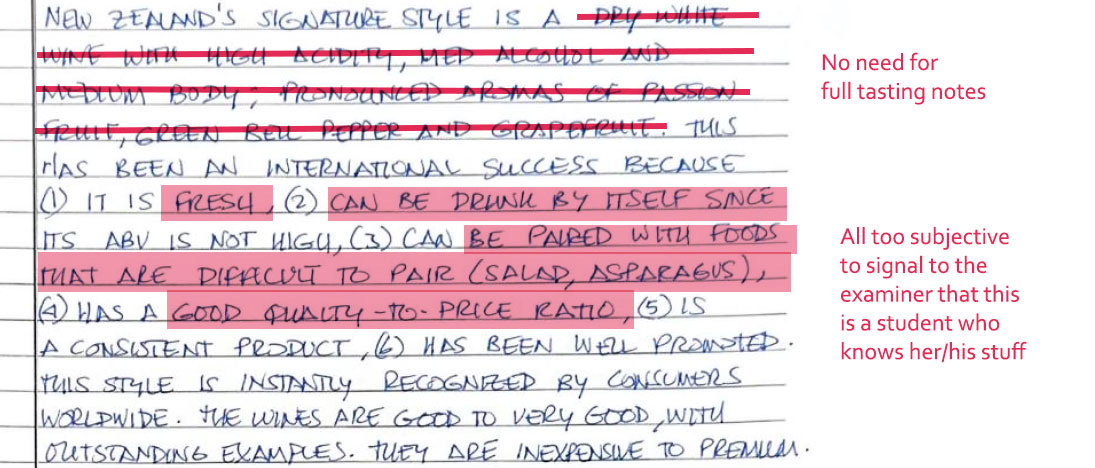 NEW ZEALAND'S SIGNATURE STYLE IS A DRY WHITE
WINE WITH HIGH ACIDITY, MED ALCOHOL AND
MEDIUM BODY; PRONOUNCED AROMAS OF PASSION
FRUIT, GREEN BELL PEPPER AND GRAPEFRUIT. THIS
HAS BEEN AN INTERNATIONAL SUCCESS BECAUSE
(1) IT IS FRESH, (2) CAN BE DRUNK BY ITSELF SINCE
ITS ABV IS NOT HIGH, (3) CAN BE PAIRED WITH FOODS
THAT ARE DIFFICULT TO PAIR (SALAD, ASPARAGUS),
(4) HAS A GOOD QUALTY-TO-PRICE RATIO, (5) IS
A CONSISTENT PRODUCT, (6) HAS BEEN WELL PROMOTED.
THIS STYLE IS INSTANTLY RECOGNIZED BY CONSUMERS
WORLDWIDE. THE WINES ARE GOOD TO VERY GOOD, WITH
OUTSTANDING EXAMPLES. THEY ARE INEXPENSIVE TO PREMIUM.
No need for
full tasting notes
All too subjective
to signal to the
examiner that this
is a student who
knows her/his stuff